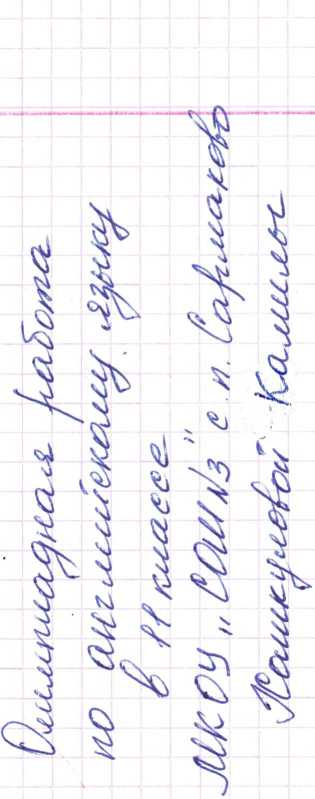 Олимпиадная работа
по английскому языку
в 11 классе
МКОУ „СОШ №3" с.п. Сармаково
Камилы